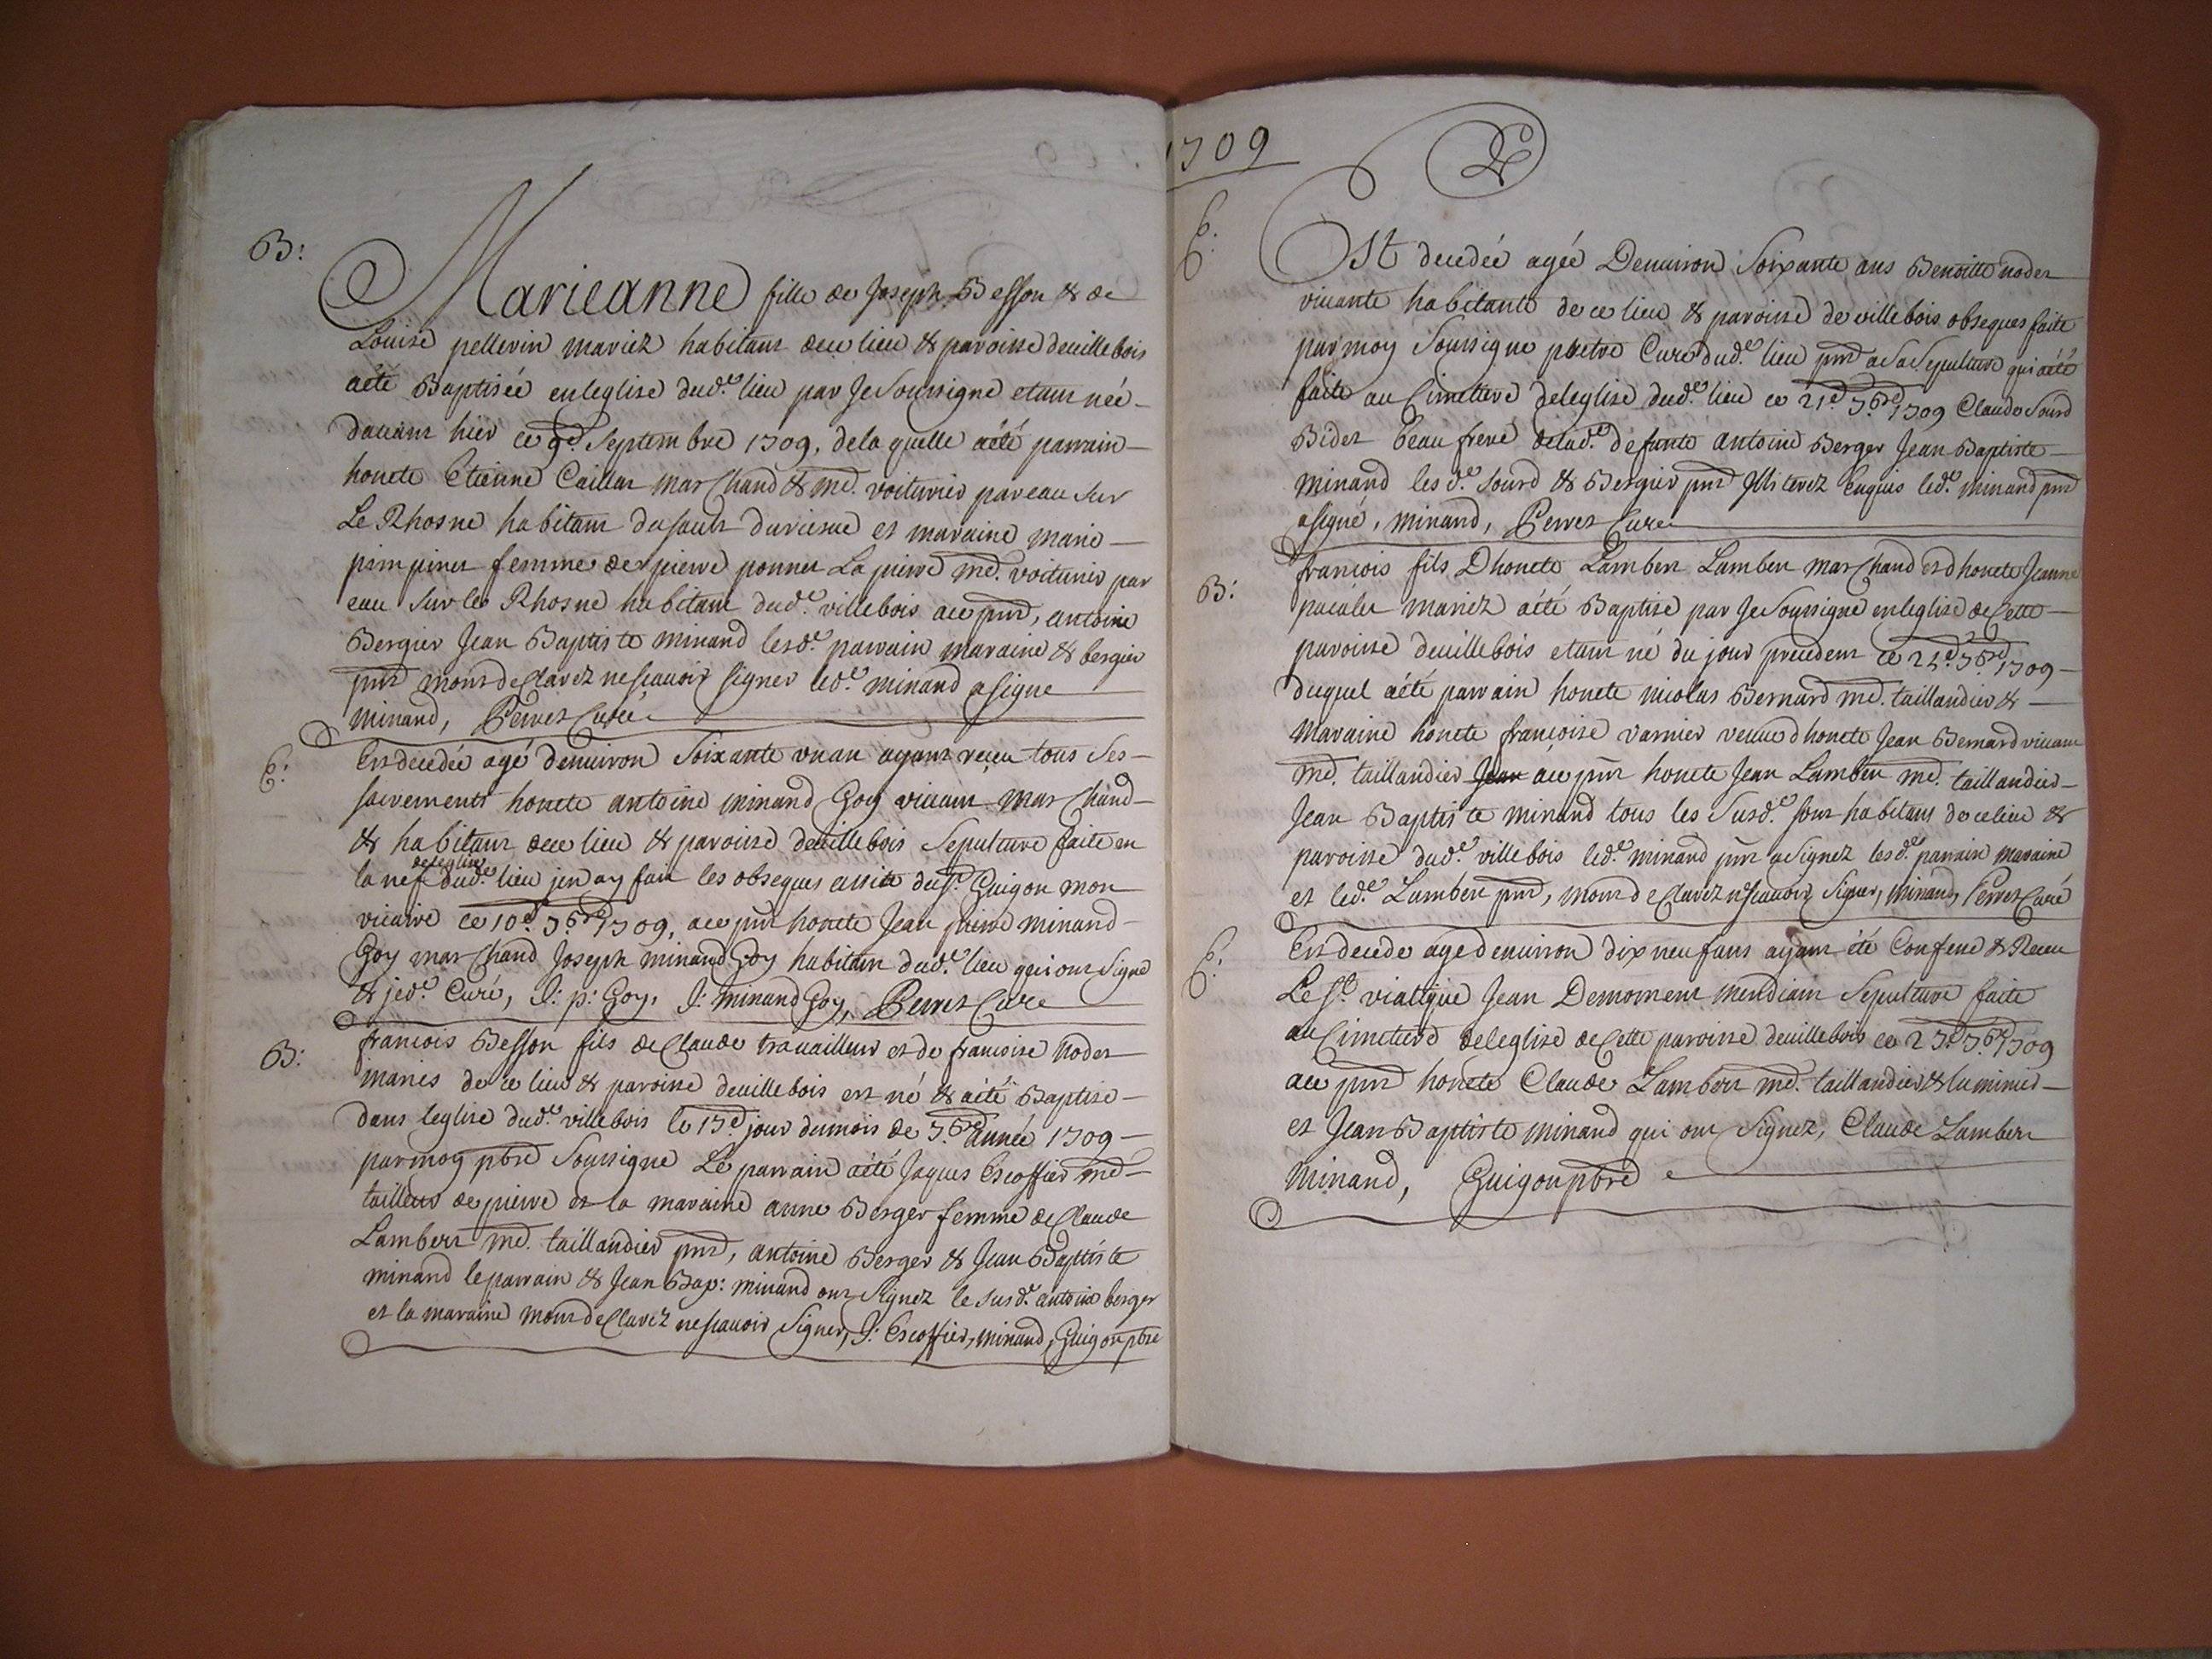 B:
Marieanne fille de Joseph Besson & de
Louise pellerin mariez habitans dece lieu & paroisse deuillebois
aété Baptisée enleglise dud.e lieu par Je Soussigné etant née
dauant hier ce 9.e Septembre 1709, dela quelle aété parrain
honete Etienne Caillat marChand & md. voiturier par eau sur
Le Rhosne habitant du sault et maraine marie
pimpinet femme de pierre ponnet La pierre md. voiturier par
eau sur le Rhosne habitant dud.e villebois ace pnt, antoine
Bergier Jean Baptiste minand lesd.e parrain maraine & bergier
pnt mont deClarez nesçauoir signer led.e minand asigné
minand, Perret Curé
E:
Est decedée agé denuiron Soixante vn an ayant reçeu tous Ses
sacrements honete antoine minand Goy viuant marChand
& habitant dece lieu & paroisse deuillebois Sepulture faite en
la nef deleglise dud.e lieu jen ay fait les obseques assité du Sr. Guigon mon
vicaire ce 10.e 7.bre 1709, ace pnt honete Jean pierre minand
Goy marChand Joseph minand Goy habitans dud.e lieu qui ont Signé
& jed.e Curé, J: p: Goy, J: minand Goy, Perret Curé
B:
francois Besson fils deClaude trauailleur et de francoise Nodet
maries de ce lieu & paroisse deuillebois est né & aété Baptise
dans leglise dud.e villebois le 13.e jour dumois de 7.bre année 1709
parmoy pbre Soussigné Le parrain aété Jaques Escoffier md
tailleur de pierre et la maraine anne Berger femme deClaude
Lambert md. taillandier pnt, antoine Berger & Jean Baptiste
minand le parrain & Jean Bap: minand ont Signez le susd.e antoine berger
et la maraine mont deClarez nesçauoir Signer, J: Escoffier, minand, Guigon pbre
1709
E:
Est decedée agée Denuiron Soixante ans Benoitte nodet
viuante habitante de ce lieu & paroisse de villebois obseques faite
par moy Soussigné pbetre Curé dud.e lieu pnt a Sa Sepulture qui aété
faite au Cimetiere deleglise dud.e lieu ce 21.e 7.bre 1709 Claude Sourd
Bidet beau frere delad.e defunte antoine Berger Jean Baptiste
minand les d.e Sourd & Bergier pnt Jlliterez Enquis led.e minand pnt
asigné, minand, Perret Curé
B:
francois fils Dhonete Lambert Lambert marChand et dhonete Jeanne
pacalet mariez aété Baptisé par Je Soussigné enleglise deCette
paroisse deuillebois etant né du jour precedent ce 22.e 7.bre 1709
duquel aété parrain honete nicolas Bernard md. taillandier &
Maraine honete françoise varnier veuue dhonete Jean Bernard viuant
md. taillandier Jean ace pnt honete Jean Lambert md. taillandier
Jean Baptiste minand tous les Susd.e sont habitans de ce lieu &
paroisse dud.e villebois led.e minand pnt a Signez les d.e parrain maraine
et led.e Lambert pnt, mont deClarez nesçauoir Signer, minand, Perret Curé
E:
Est decede age denuiron dix neuf ans ayant été Confessé & Receu
Le St. viatique Jean Demoment mendiant Sepulture faite
au Cimetiere deleglise deCette paroisse deuillebois ce 27.e 7.bre 1709
ace pnt honete Claude Lambert md. taillandier & luminier
et Jean Baptiste minand qui ont Signez, Claude Lambert
minand, Guigon pbre